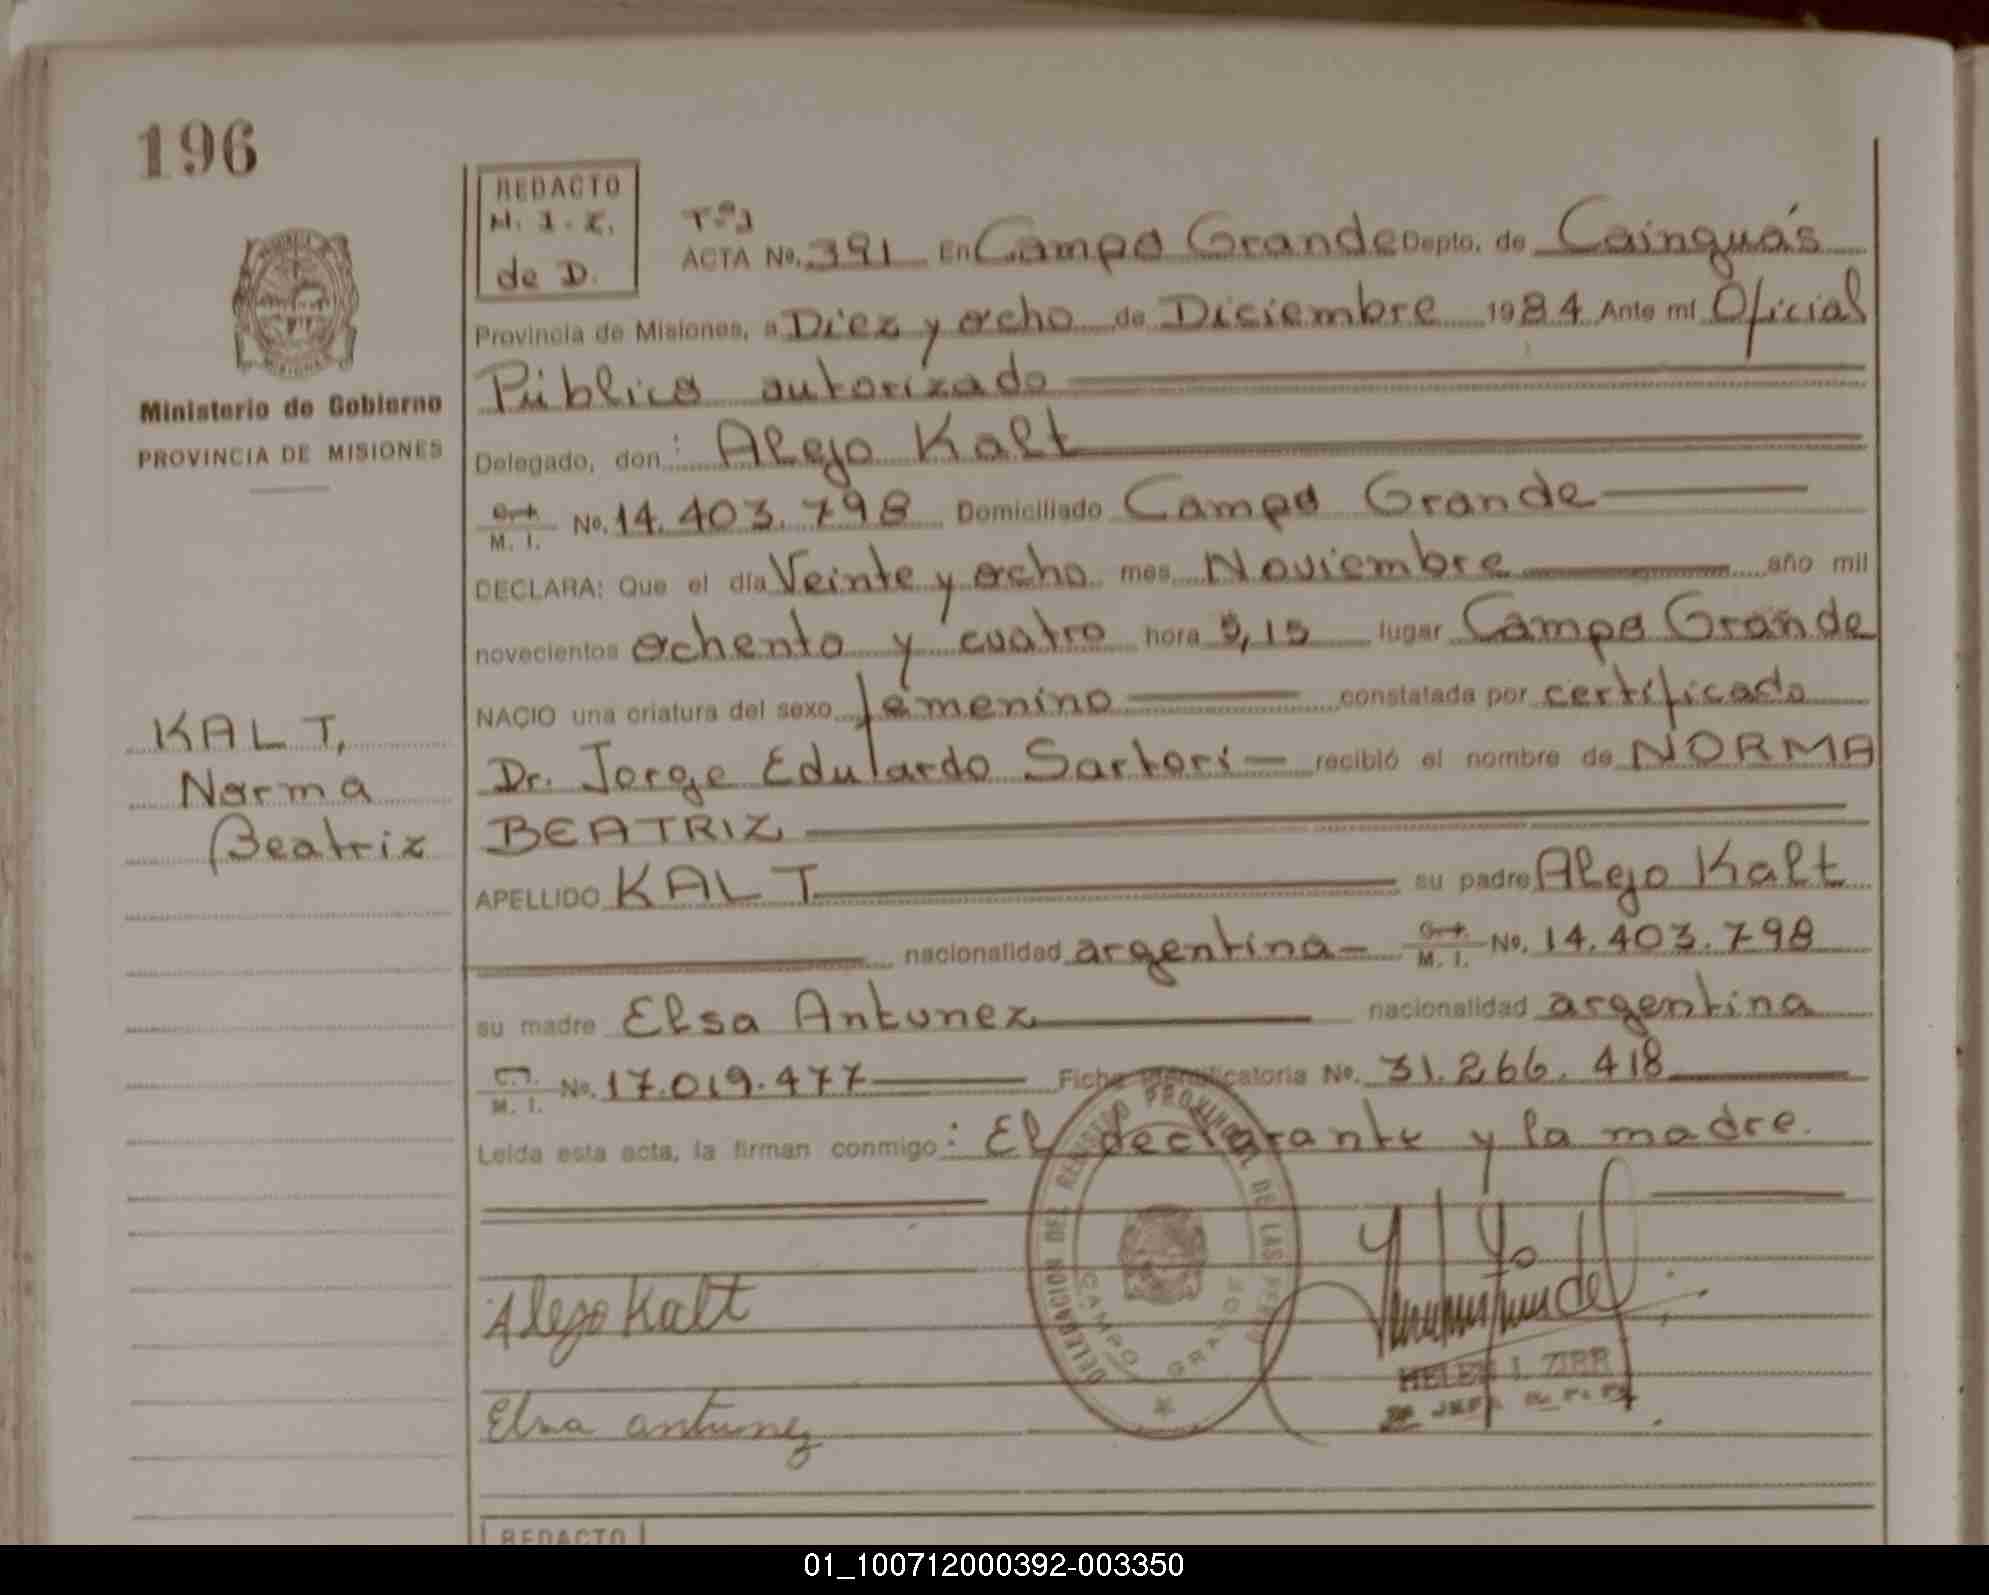 196
REDACTO
N. I. Z.
de D.
Tº 1
ACTA No. 391 En Campo Grande Depto. de Cainguás
Provincia de Misiones, a Diez y ocho de Diciembre 1984 Ante mí Oficial
Público autorizado
Delegado, don: Alejo Kalt
M. I. No. 14.403.798 Domiciliado Campo Grande
DECLARA: Que el día Veinte y ocho mes Noviembre año mil
novecientos ochenta y cuatro hora 9,15 lugar Campo Grande
NACIO una criatura del sexo femenino constatada por certificado
Dr. Jorge Edulardo Sartori recibió el nombre de NORMA
BEATRIZ
APELLIDO KALT su padre Alejo Kalt
nacionalidad argentina M. I. No. 14.403.798
su madre Elsa Antunez nacionalidad argentina
M. I. No. 17.019.477 Ficha Identificatoria No. 31.266.418
Leída esta acta, la firman conmigo: El declarante y la madre.
Alejo Kalt
Elsa antunez
DELEGACION DEL REGISTRO PROVINCIAL DE LAS PERSONAS
CAMPO GRANDE
HELEN I. ZIRR
Ministerio de Gobierno
PROVINCIA DE MISIONES
KALT,
Norma
Beatriz
REDACTO
01_100712000392-003350